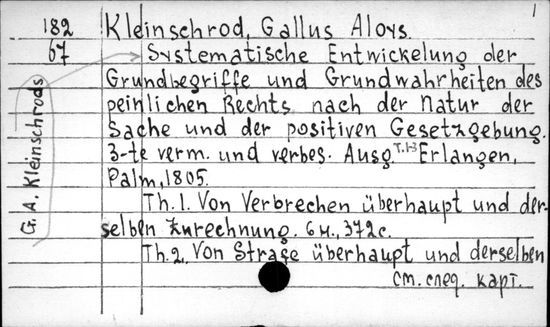 1
182 Kleinschrod, Gallus Aloys.
67 Systematische Entwickelung der
Grundbegriffe und Grundwahrheiten des
peinlichen Rechts nach der Natur der
Sache und der positiven Gesetzgebung.
3-te verm. und verbes. Ausg. T.1-3 Erlangen,
Palm, 1805.
Th. 1. Von Verbrechen überhaupt und der-
selben Zurechnung. 6 н., 372 с.
Th. 2. Von Strafe überhaupt und derselben
см. след. карт.
G. A. Kleinschrods